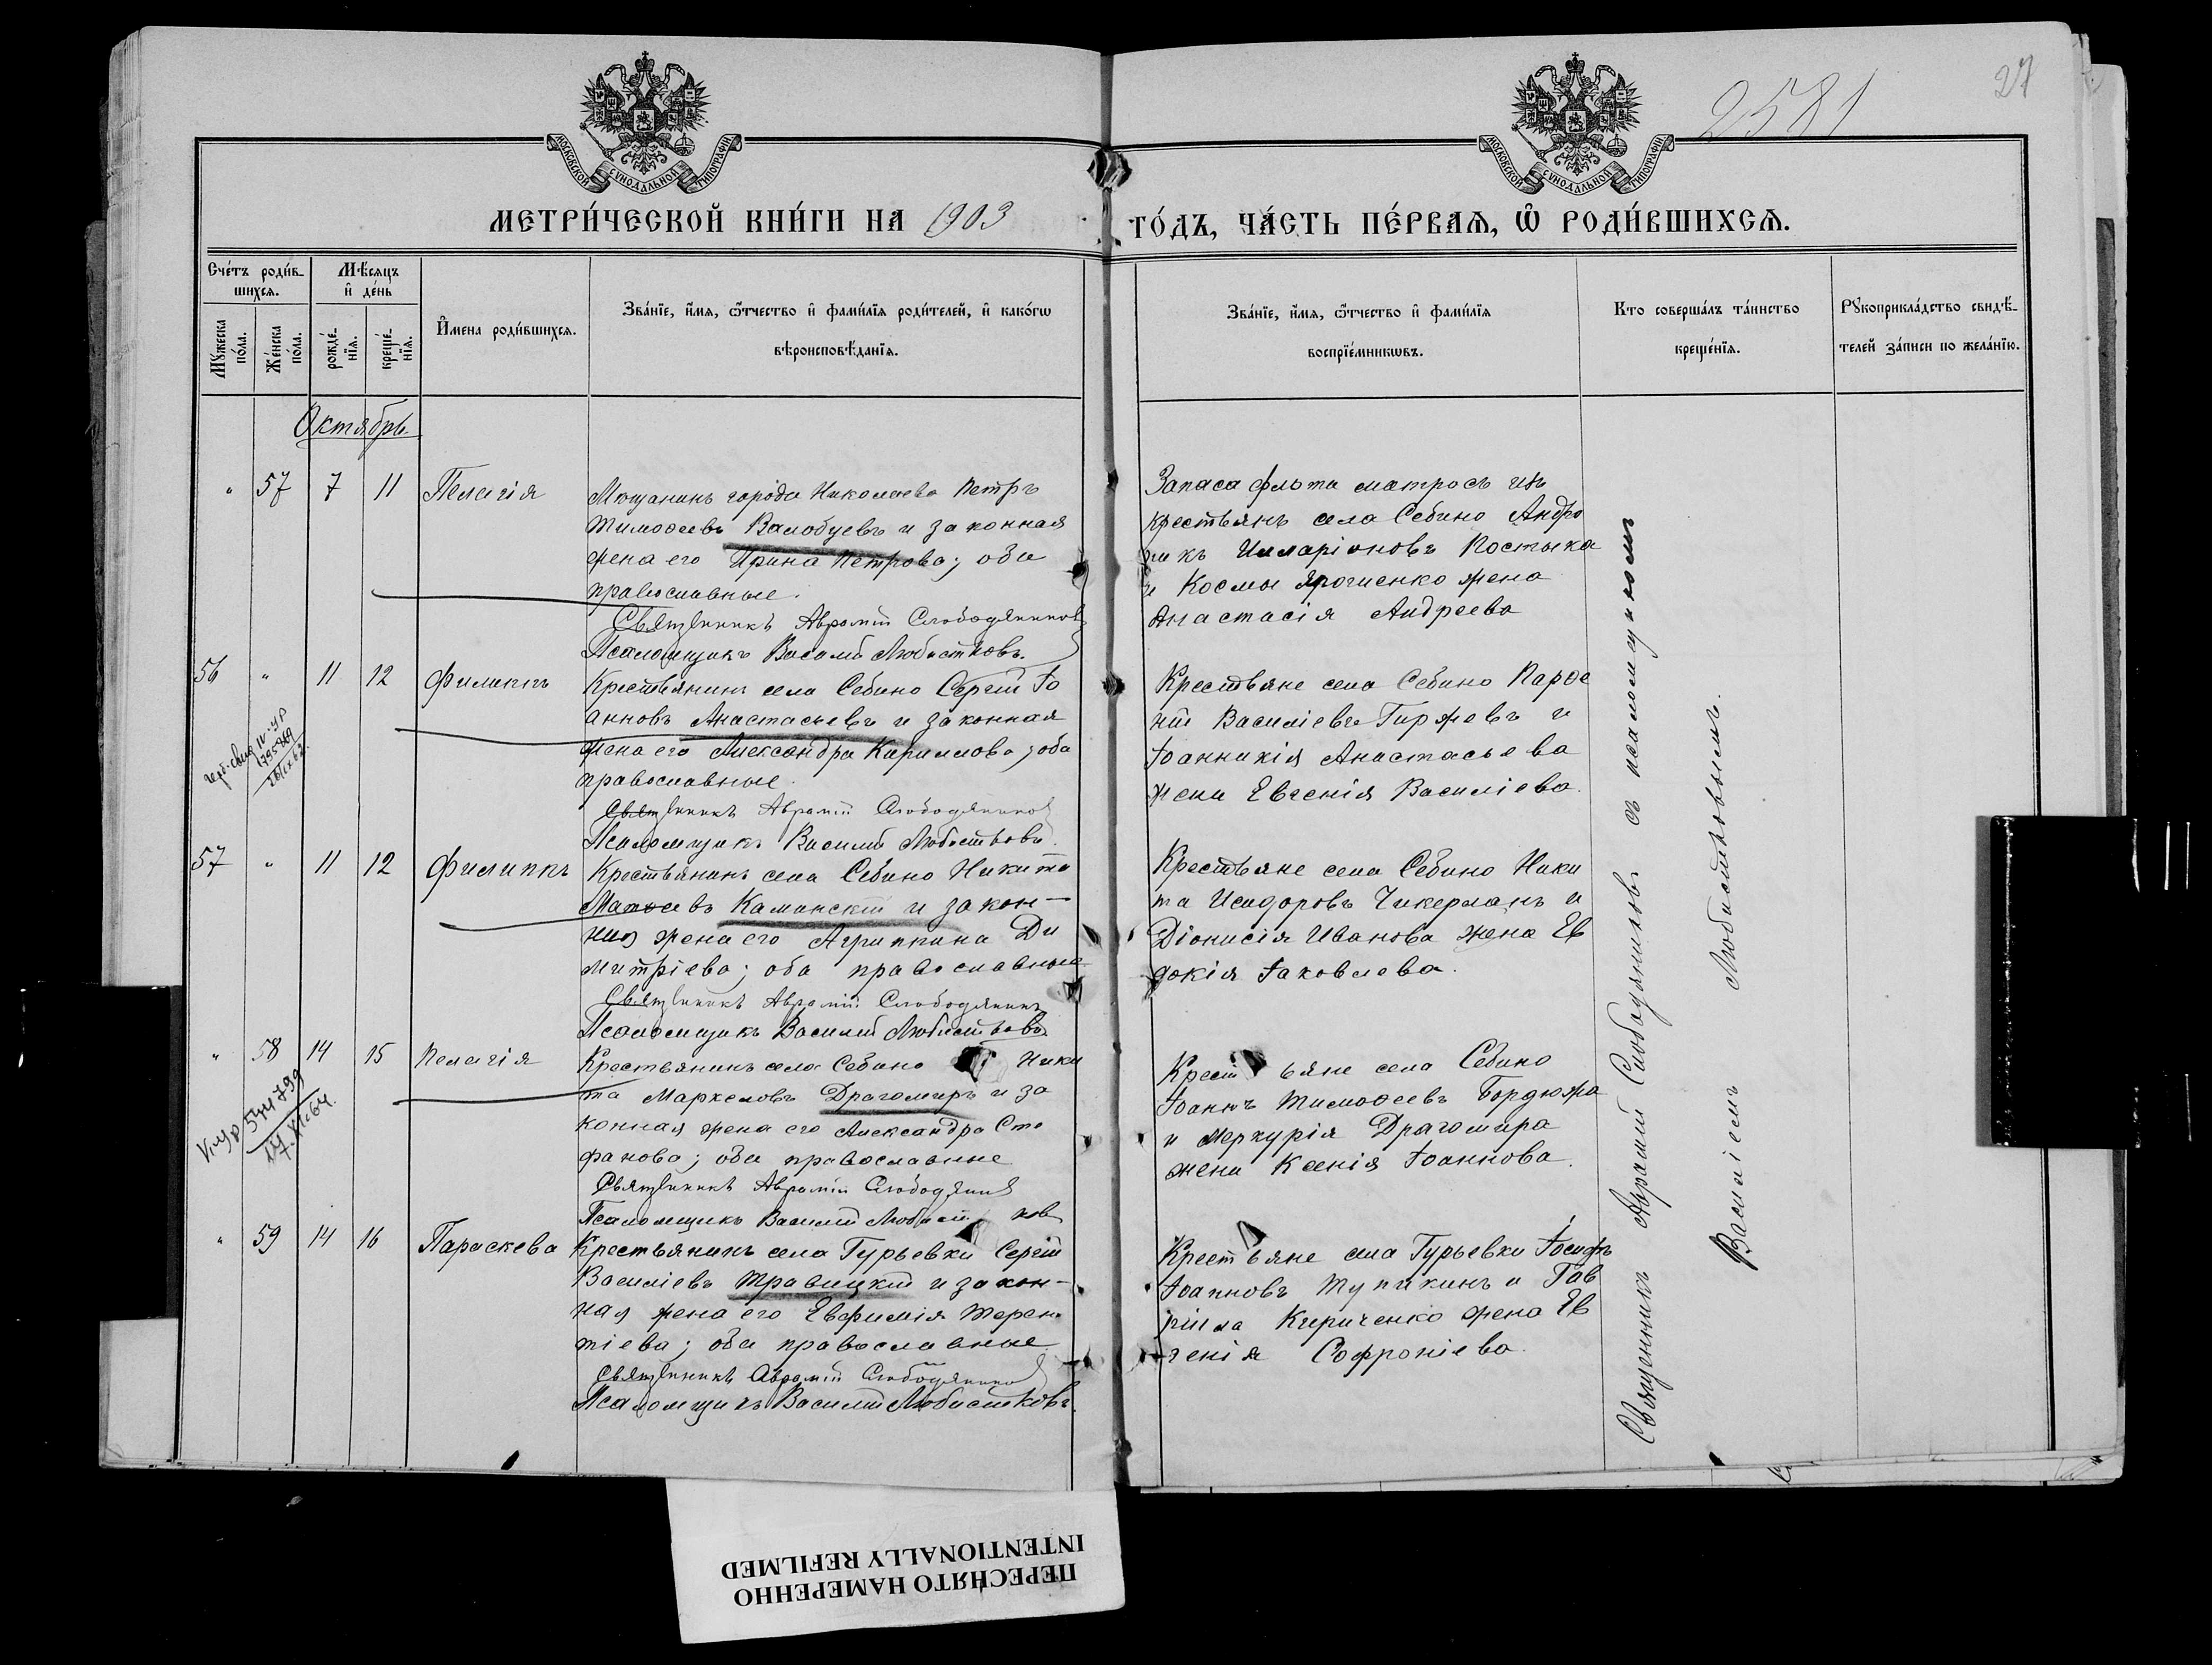 2581
27
МОСКОВСКОЙ СѴНОДАЛЬНОЙ ТИПОГРАФІИ.
МОСКОВСКОЙ СѴНОДАЛЬНОЙ ТИПОГРАФІИ.
МЕТРИ́ЧЕСКОЙ КНИ́ГИ НА 1903
ГО́ДЪ, ЧА́СТЬ ПЕ́РВАѦ, Ѡ҆ РОДИ́ВШИХСѦ.
Сче́тъ роди́в-
шихсѧ.
Мѣ́сѧцъ
и҆ де́нь
Мꙋ́жеска
по́ла.
Же́нска
по́ла.
рожде́-
нїѧ.
креще́-
нїѧ.
И҆́мена роди́вшихсѧ.
Зва́нїе, и҆́мѧ, ѻ҆́тчество и҆ фами́лїѧ роди́телей, и҆ како́гѡ
вѣроисповѣ́данїѧ.
Зва́нїе, и҆́мѧ, ѻ҆́тчество и҆ фами́лїѧ
воспрїе́мникѡвъ.
Кто соверша́лъ та́инство
креще́нїѧ.
Рꙋкоприкла́дство свидѣ́-
телей за́писи по жела́нїю.
Октябрь
" 57 7 11 Пелагія
Мѣщанинъ города Николаева Петръ
Тимоѳеевъ Валобуевъ и законная
жена его Ирина Петрова; оба
православные.
Священникъ Аврамій Слободяниковъ
Псаломщикъ Василій Любистковъ.
Запаса флота матросъ изъ
крестьянъ села Себино Андро
никъ Илларіоновъ Костыка
и Космы Ярошенко жена
Анастасія Андреева
56 " 11 12 Филиппъ
Крестьянинъ села Себино Сергій Іо
анновъ Анастасьевъ и законная
жена его Александра Кириллова; оба
православные.
Священникъ Аврамій Слободяников
Псаломщикъ Василій Любистковъ.
Крестьяне села Себино Парѳе
ній Василіевъ Гиржевъ и
Іоанникія Анастасьева
жена Евгенія Василіева.
57 " 11 12 Филиппъ
Крестьянинъ села Себино Никита
Матѳеевъ Каминскій и закон-
ная жена его Агриппина Ди
митріева; оба православные
Священникъ Аврамій Слободяникъ
Псаломщикъ Василій Любистковъ
Крестьяне села Себино Ники
та Исидоровъ Чикерманъ и
Діонисія Иванова жена Ев
докія Іаковлева.
" 58 14 15 Пелагія
Крестьянинъ села Себино Ники
та Маркеловъ Драгомиръ и за
конная жена его Александра Сте
фанова; оба православные
Священникъ Аврамій Слободяник
Псаломщикъ Василій Любистков
Крестьяне села Себино
Іоаннъ Тимоѳеевъ Бордюжа
и Меркурія Драгомира
жена Ксенія Іоаннова.
" 59 14 16 Параскева
Крестьянинъ села Гурьевки Сергій
Василіевъ Травицкій и закон-
ная жена его Евфимія Терен
тіева; оба православные
Священникъ Аврамій Слободяников
Псаломщикъ Василій Любистковъ.
Крестьяне села Гурьевки Іосифъ
Іоанновъ Тупикинъ и Гав
ріила Кириченко жена Ев
генія Софроніева.
Священникъ Аврамій Слободяниковъ съ псаломщикомъ
Василіемъ Любистковымъ.
ПЕРЕСНЯТО НАМЕРЕННО
INTENTIONALLY REFILMED